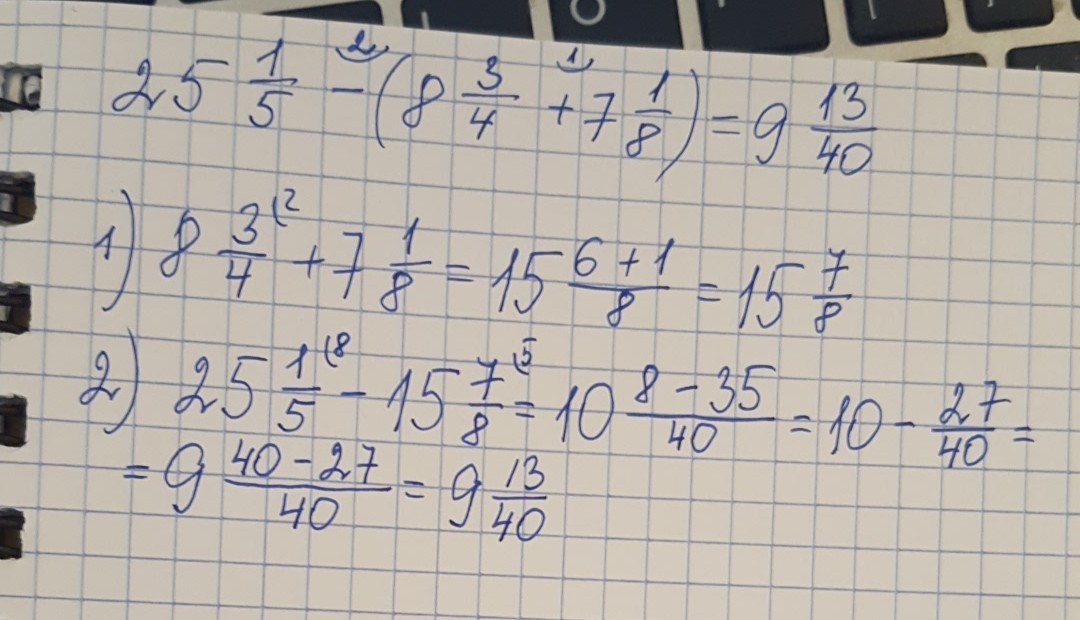 25 1/5 - (8 3/4 + 7 1/8) = 9 13/40
1) 8 3/4 (2 + 7 1/8 = 15 6+1/8 = 15 7/8
2) 25 1/5 (8 - 15 7/8 (5 = 10 8-35/40 = 10 - 27/40 =
= 9 40-27/40 = 9 13/40